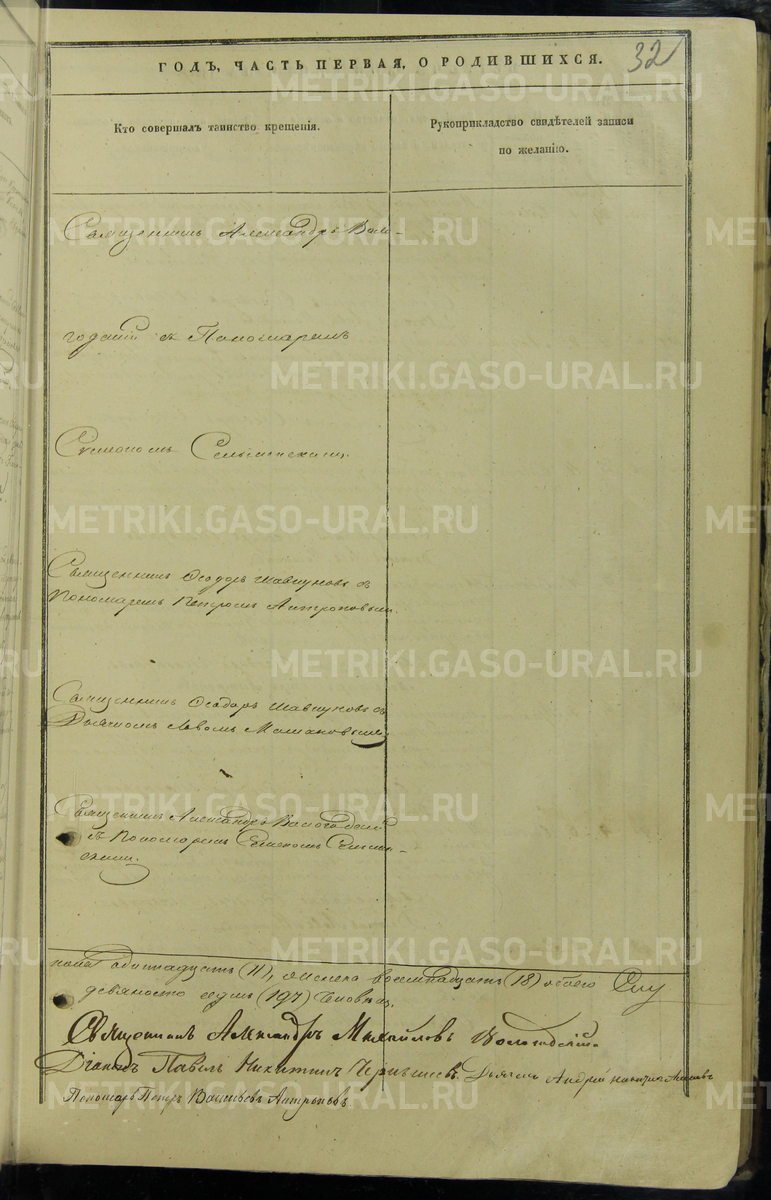 32
ГОДЪ, ЧАСТЬ ПЕРВАЯ, О РОДИВШИХСЯ.
Кто совершалъ таинство крещенія.
Рукоприкладство свидѣтелей записи
по желанію.
Священникъ Александръ Воло-
годскій съ Пономаремъ
Священникъ Ѳеодоръ съ
Пономаремъ Петромъ Антроповымъ.
Священникъ Ѳеодоръ съ
Дьячкомъ Львомъ
Священникъ Александръ Вологодскій
съ Пономаремъ
одинадцать (11), женска восемнадцать (18) обоего
девяносто седмь (197) человѣкъ.
Священникъ Александръ Михайловъ Вологодскій.
Діаконъ Павелъ Никитинъ Чернышевъ. Дьячекъ Андрей
Пономарь Петръ Васильевъ Антроповъ
METRIKI.GASO-URAL.RU